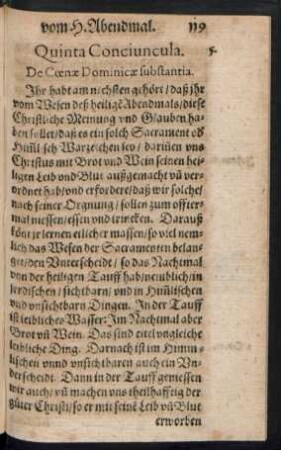 vom H. Abendmal. 119
Quinta Conciuncula. 5.
De Cœnæ Dominicæ substantia.
Ihr habt am nechsten gehört / daß jhr
vom Wesen deß heiligē Abendmals / diese
Christliche Meinung vnd Glauben ha-
ben sollet / daß es ein solch Sacrament oď
Him̃lisch Warzeichen sey / dariñen vns
Christus mit Brot vnd Wein seinen hei-
ligen Leib vnd Blut außgemacht vñ ver-
ordnet hab / vnd erfordere / daß wir solche /
nach seiner Ordnung / sollen zum offter-
mal niessen / essen vnd trincken. Darauß
köñt jr lernen etlicher massen / so viel nem-
lich das Wesen der Sacramenten belan-
get / den Vnterscheidt / so das Nachtmal
von der heiligen Tauff hab / nemblich / in
jerdischen / sichtbarn / vnd in Him̃lischen
vnd vnsichtbarn Dingen. In der Tauff
ist leibliches Wasser: Im Nachtmal aber
Brot vñ Wein. Das sind eitel vngleiche
leibliche Ding. Darnach ist im Himm-
lischen vnnd vnsichtbaren auch ein Vn-
derscheidt. Dann in der Tauff geniessen
wir auch / vñ machen vns theilhafftig der
Güter Christi / so er mit seinē Leib vñ Blut
erworben